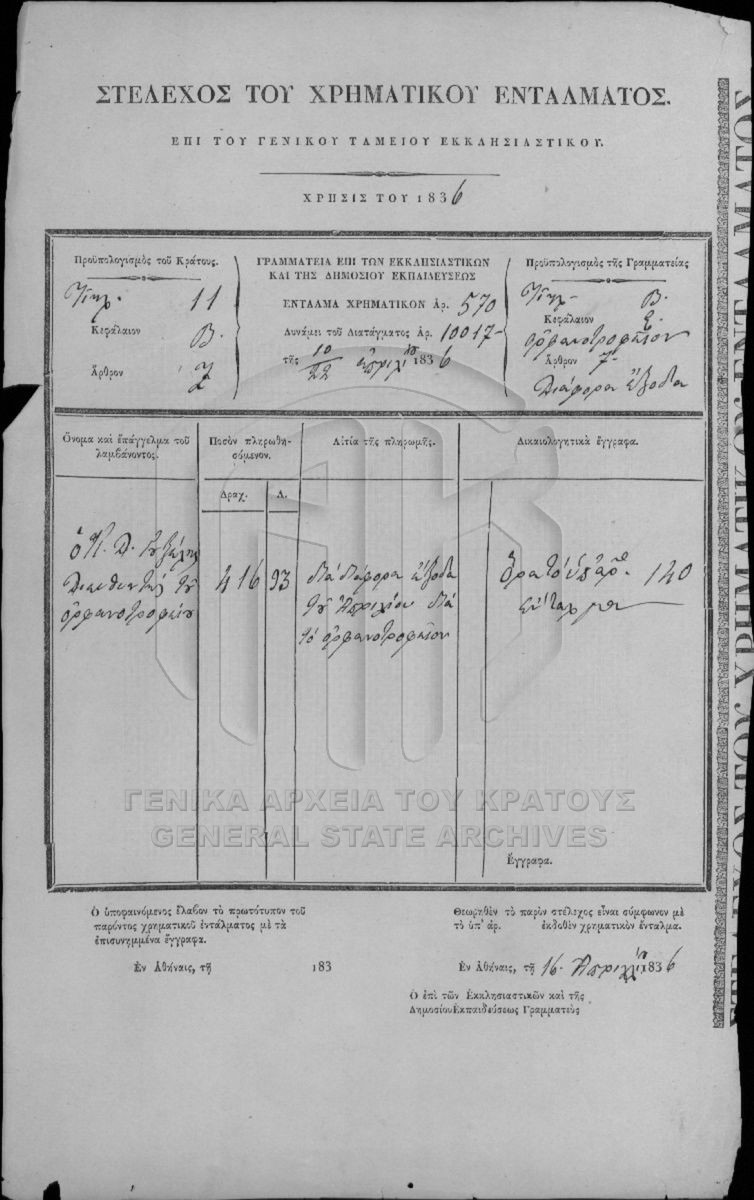 ΣΤΕΛΕΧΟΣ ΤΟΥ ΧΡΗΜΑΤΙΚΟΥ ΕΝΤΑΛΜΑΤΟΣ.
ΕΠΙ ΤΟΥ ΓΕΝΙΚΟΥ ΤΑΜΕΙΟΥ ΕΚΚΛΗΣΙΑΣΤΙΚΟΥ.
ΧΡΗΣΙΣ ΤΟΥ 1836
Προϋπολογισμὸς τοῦ Κράτους.
11
Κεφάλαιον
Β.
Ἄρθρον
7
ΓΡΑΜΜΑΤΕΙΑ ΕΠΙ ΤΩΝ ΕΚΚΛΗΣΙΑΣΤΙΚΩΝ
ΚΑΙ ΤΗΣ ΔΗΜΟΣΙΟΥ ΕΚΠΑΙΔΕΥΣΕΩΣ
ΕΝΤΑΛΜΑ ΧΡΗΜΑΤΙΚΟΝ Ἀρ. 570
Δυνάμει τοῦ Διατάγματος Ἀρ. 10017
τῆς 10/22 ἀπριλίου 1836
Προϋπολογισμὸς τῆς Γραμματείας
Β.
Κεφάλαιον
ὀρφανοτροφεῖον
Ἄρθρον 7
Διάφορα ἔξοδα
Ὄνομα καὶ ἐπάγγελμα τοῦ
λαμβάνοντος.
Ποσὸν πληρωθη-
σόμενον.
Δραχ. Λ.
Αἰτία τῆς πληρωμῆς.
Δικαιολογητικὰ ἔγγραφα.
ὁ Κ. Δ.
Διευθυντὴς τοῦ
ὀρφανοτροφείου
416 93
διὰ διάφορα ἔξοδα
τοῦ Ἀπριλίου διὰ
τὸ ὀρφανοτροφεῖον
Ὅρα τὸ ὑπ' ἀρ. 140
ἔνταλμα
ΓΕΝΙΚΑ ΑΡΧΕΙΑ ΤΟΥ ΚΡΑΤΟΥΣ
GENERAL STATE ARCHIVES
Ἔγγραφα.
Ὁ ὑποφαινόμενος ἔλαβον τὸ πρωτότυπον τοῦ
παρόντος χρηματικοῦ ἐντάλματος μὲ τὰ
ἐπισυνημμένα ἔγγραφα.
Ἐν Ἀθήναις, τῇ 183
Θεωρηθὲν τὸ παρὸν στέλεχος εἶναι σύμφωνον μὲ
τὸ ὑπ' ἀρ. ἐκδοθὲν χρηματικὸν ἔνταλμα.
Ἐν Ἀθήναις, τῇ 16 Ἀπριλλίου 1836
Ὁ ἐπὶ τῶν Ἐκκλησιαστικῶν καὶ τῆς
Δημοσίου Ἐκπαιδεύσεως Γραμματεὺς
ΣΤΕΛΕΧΟΣ ΤΟΥ ΧΡΗΜΑΤΙΚΟΥ ΕΝΤΑΛΜΑΤΟΣ